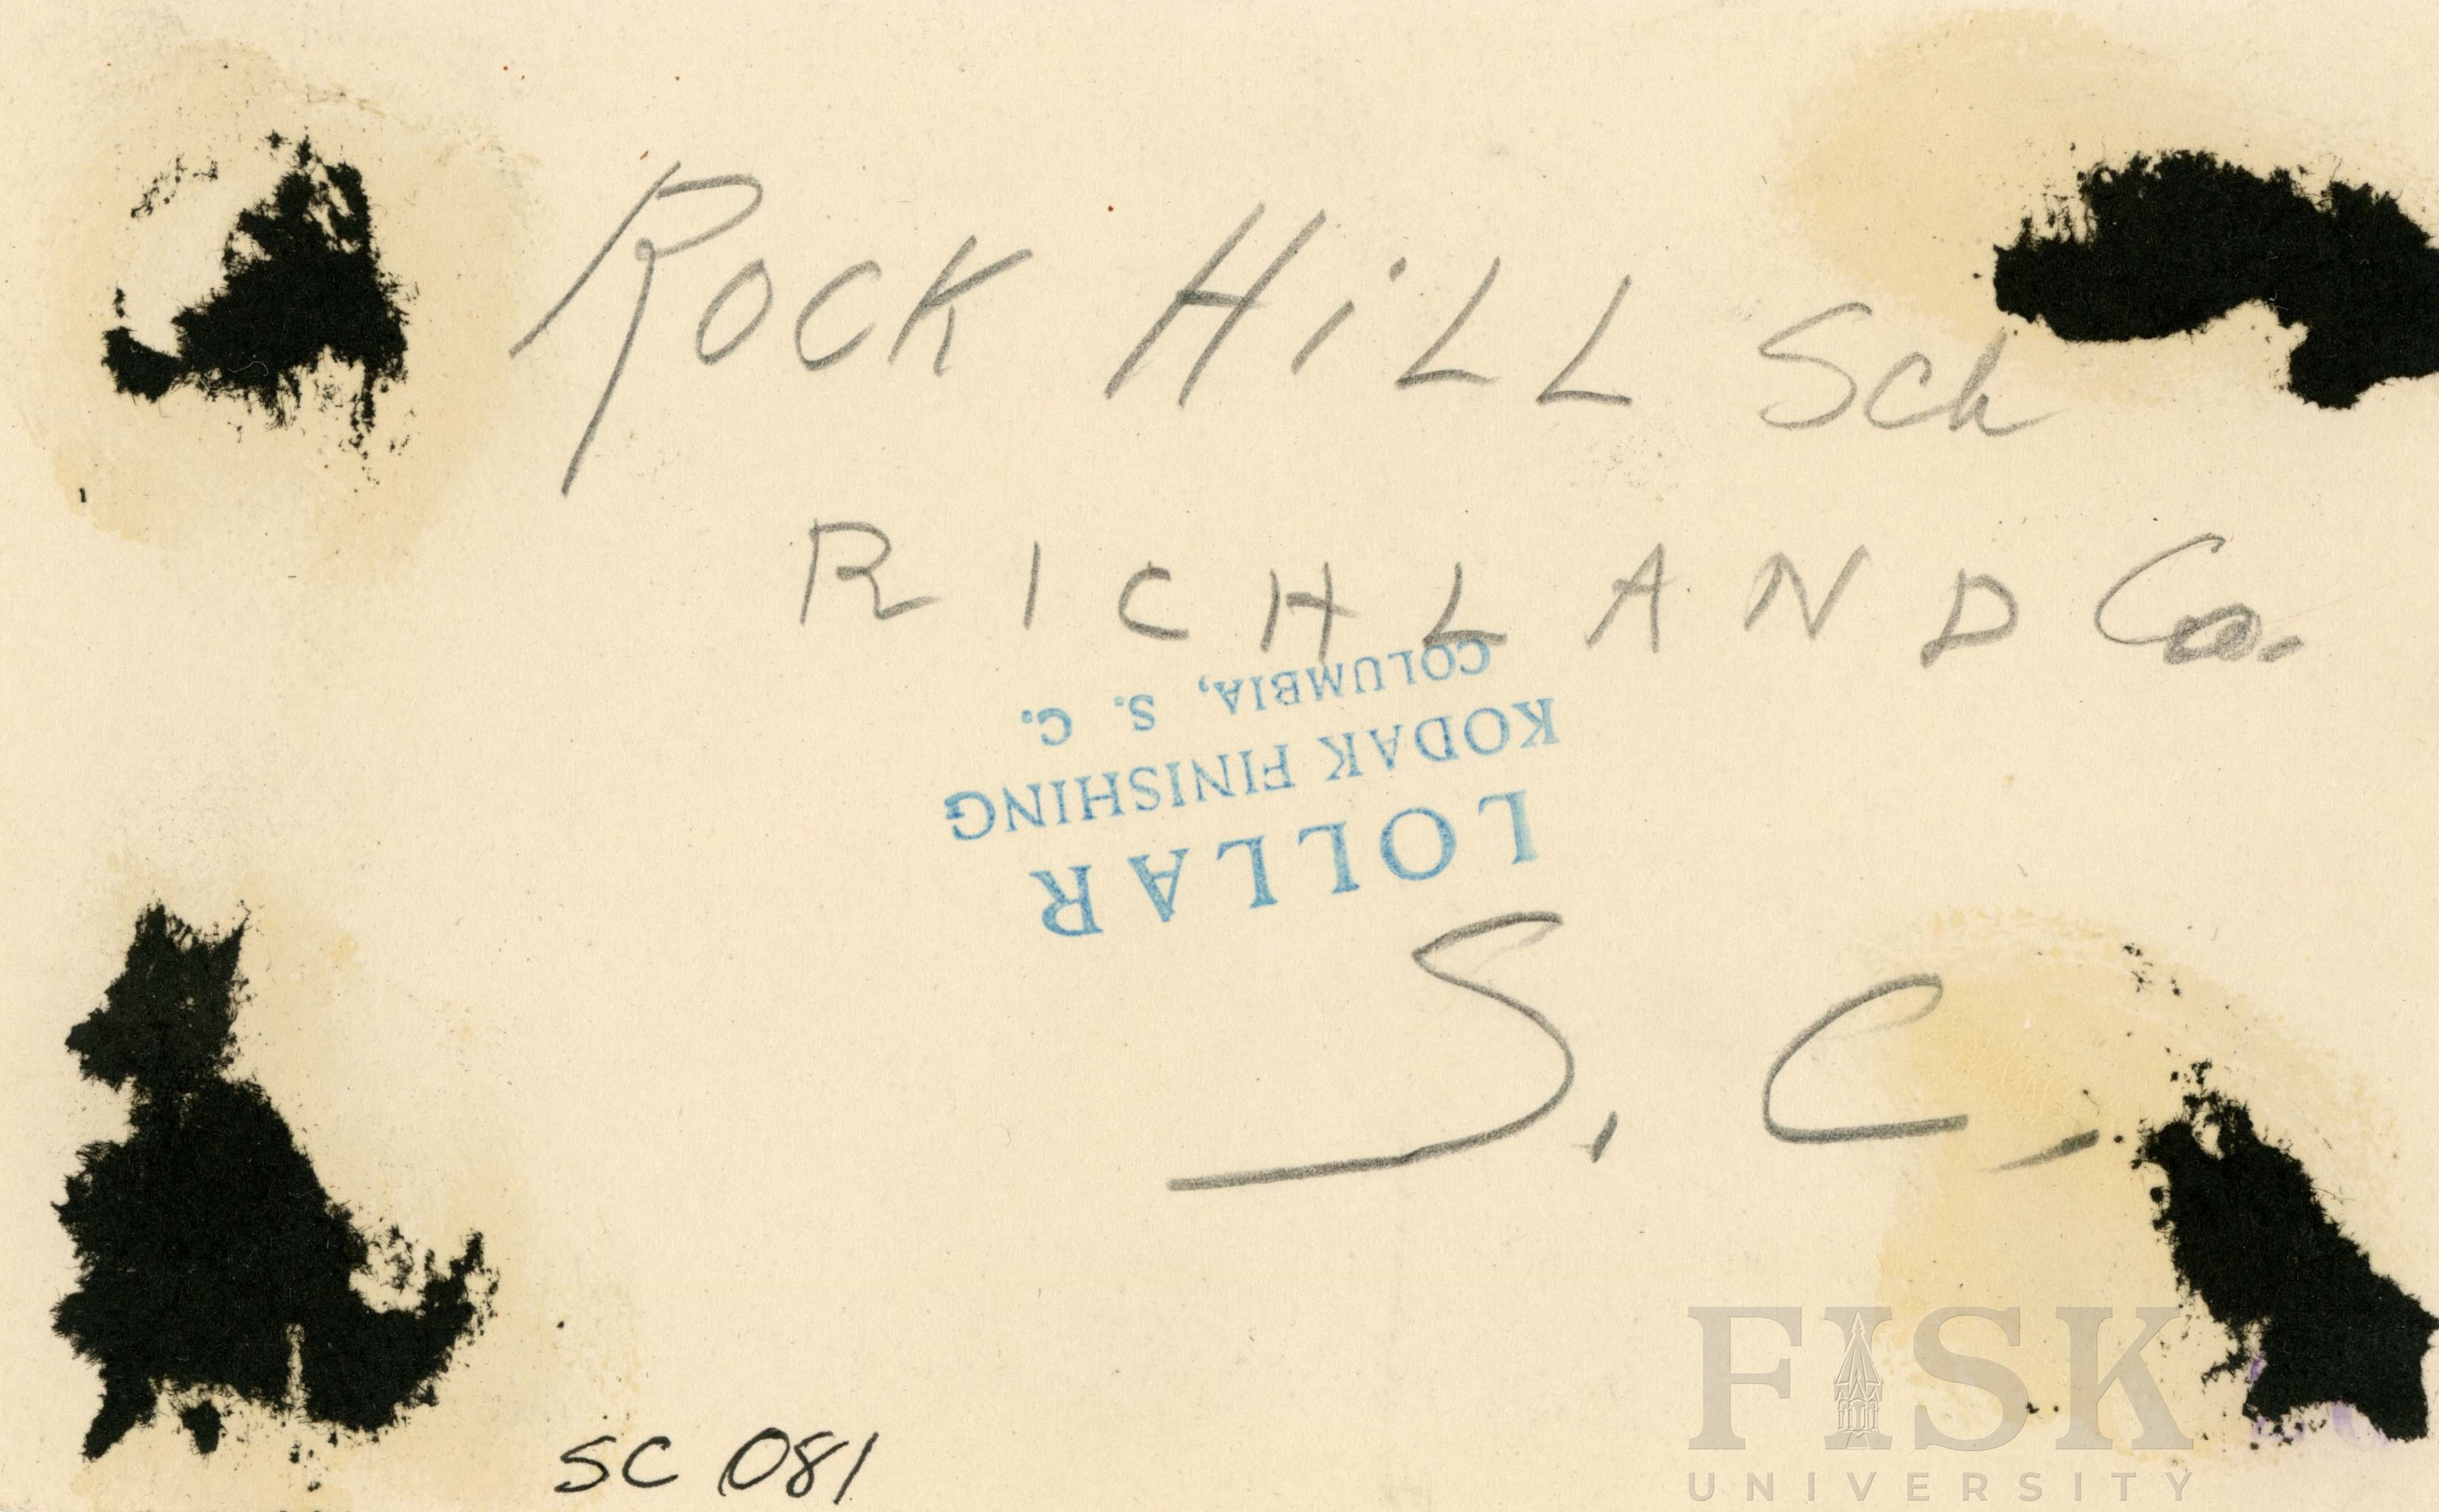 ROCK HiLL Sch
RICHLAND Co.
LOLLAR
KODAK FINISHING
COLUMBIA, S. C.
S. C.
SC 081
FISK
UNIVERSITY